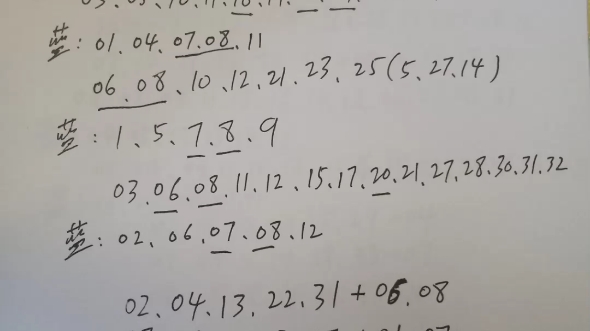 蓝: 01.04.07.08.11
06.08、10、12、21、23、25(5、27.14)
蓝: 1、5、7、8、9
03.06.08.11.12、15.17.20.21.27.28.30.31.32
蓝: 02、06.07.08.12
02.04.13.22.31+06.08